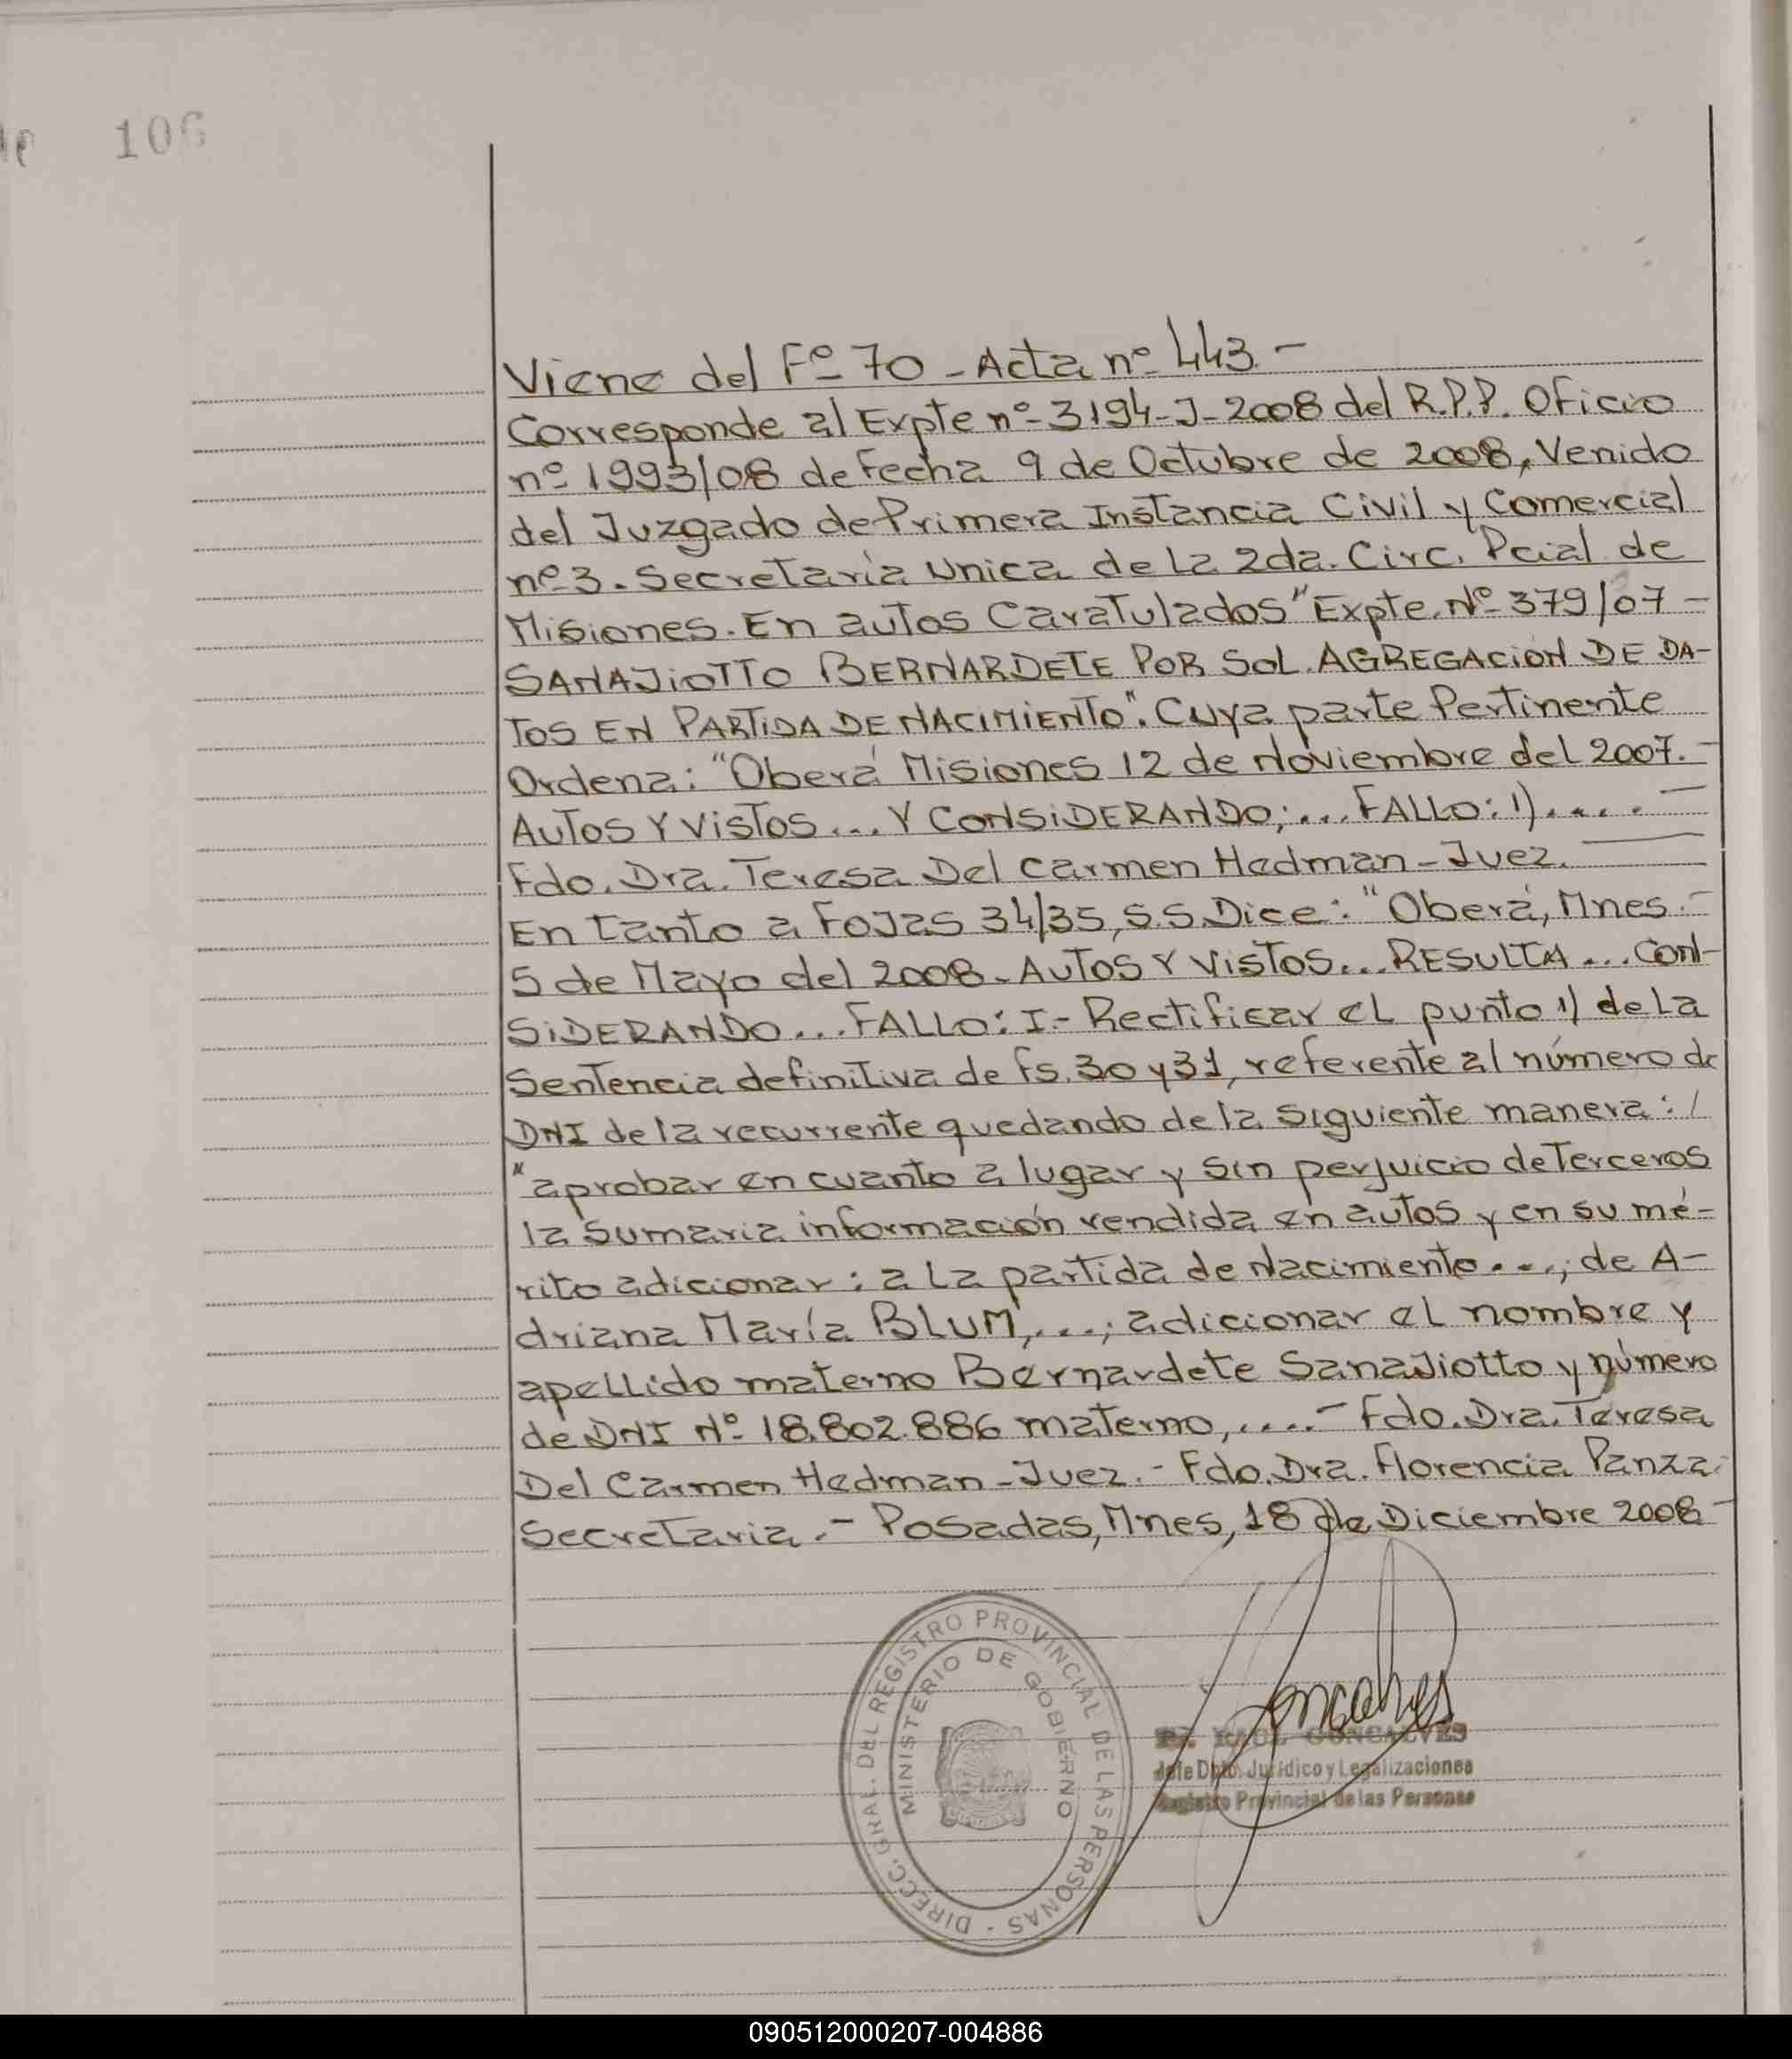 106
Viene del Fº 70 - Acta nº 443.-
Corresponde al Expte nº 3194-J-2008 del R.P.P. Oficio
nº 1993/08 de Fecha 9 de Octubre de 2008, Venido
del Juzgado de Primera Instancia Civil y Comercial
nº 3. Secretaría Unica de La 2da. Circ. Pcial de
Misiones. En autos Caratulados "Expte. Nº 379/07 -
SANAJIOTTO BERNARDETE POR SOL. AGREGACIÓN DE DA-
TOS EN PARTIDA DE NACIMIENTO". Cuya parte Pertinente
Ordena: "Oberá Misiones 12 de Noviembre del 2007.-
AUTOS Y VISTOS... Y CONSIDERANDO;... FALLO: 1).... -
Fdo. Dra. Teresa Del Carmen Hedman - Juez.
En Tanto a Fojas 34/35, S.S. Dice: "Oberá, Mnes.-
5 de Mayo del 2008. AUTOS Y VISTOS... RESULTA... CON-
SIDERANDO... FALLO: I.- Rectificar el punto 1) de La
Sentencia definitiva de fs. 30 y 31, referente al número de
DNI de la recurrente quedando de la siguiente manera: /
"aprobar en cuanto a lugar y sin perjuicio de Terceros
la sumaria información rendida en autos y en su mé-
rito adicionar: a La partida de Nacimiento...; de A-
driana María BLUM,...; adicionar el nombre y
apellido materno Bernardete Sanajiotto y número
de DNI Nº 18.802.886 materno,....- Fdo. Dra. Teresa
Del Carmen Hedman - Juez.- Fdo. Dra. Florencia Panza.
Secretaria.- Posadas, Mnes, 18 de Diciembre 2008-
DIRECC. GRAL. DEL REGISTRO PROVINCIAL DE LAS PERSONAS -
MINISTERIO DE GOBIERNO
RAUL GONCALVES
Jefe Dpto. Jurídico y Legalizaciones
Registro Provincial de las Personas
090512000207-004886